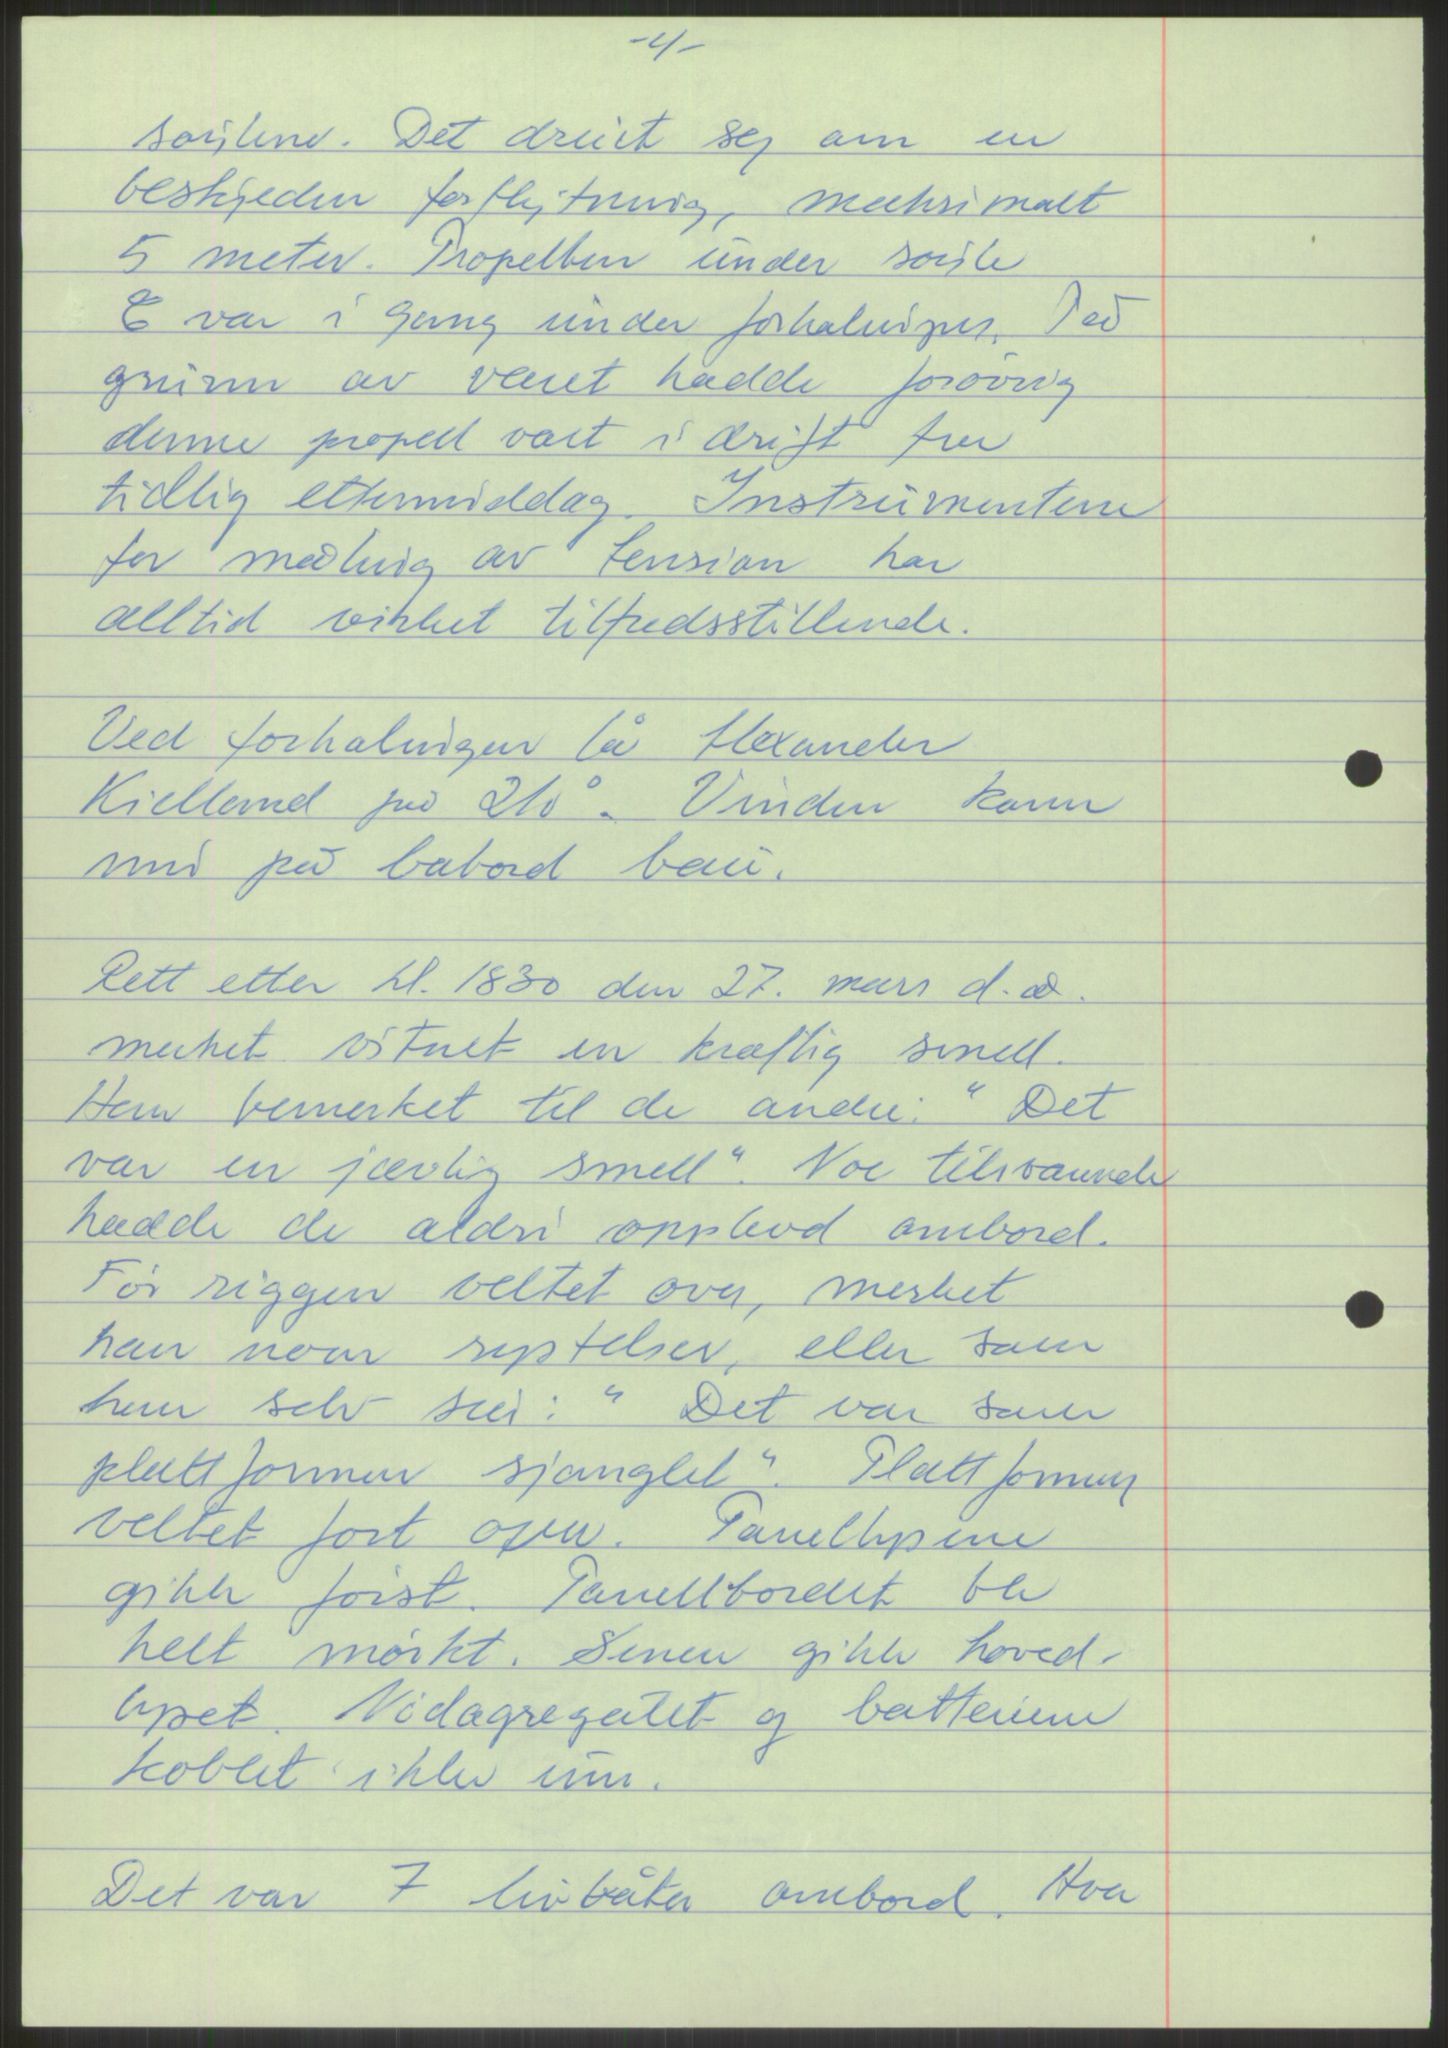 -4-
søylene. Det dreiet seg om en
beskjeden forflytning, maksimalt
5 meter. Propellen under søyle
C var i gang under forhalingen. På
grunn av været hadde forøvrig
denne propell vært i drift fra
tidlig ettermiddag. Instrumentene
for måling av tension har
alltid virket tilfredsstillende.
Ved forhalingen lå Alexander
Kielland på 210°. Vinden kom
inn på babord baug.
Rett etter kl. 1830 den 27. mars d.å.
merket vitnet en kraftig smell.
Han bemerket til de andre: "Det
var en jævlig smell". Noe tilsvarende
hadde de aldri opplevd ombord.
Før riggen veltet over, merket
han noen rystelser, eller som
han selv sier: "Det var som
plattformen sjanglet". Plattformen
veltet fort over. Panellysene
gikk først. Panelbordet ble
helt mørkt. Senere gikk hoved-
lyset. Nødagregatet og batteriene
koblet ikke inn.
Det var 7 livbåter ombord. Hver